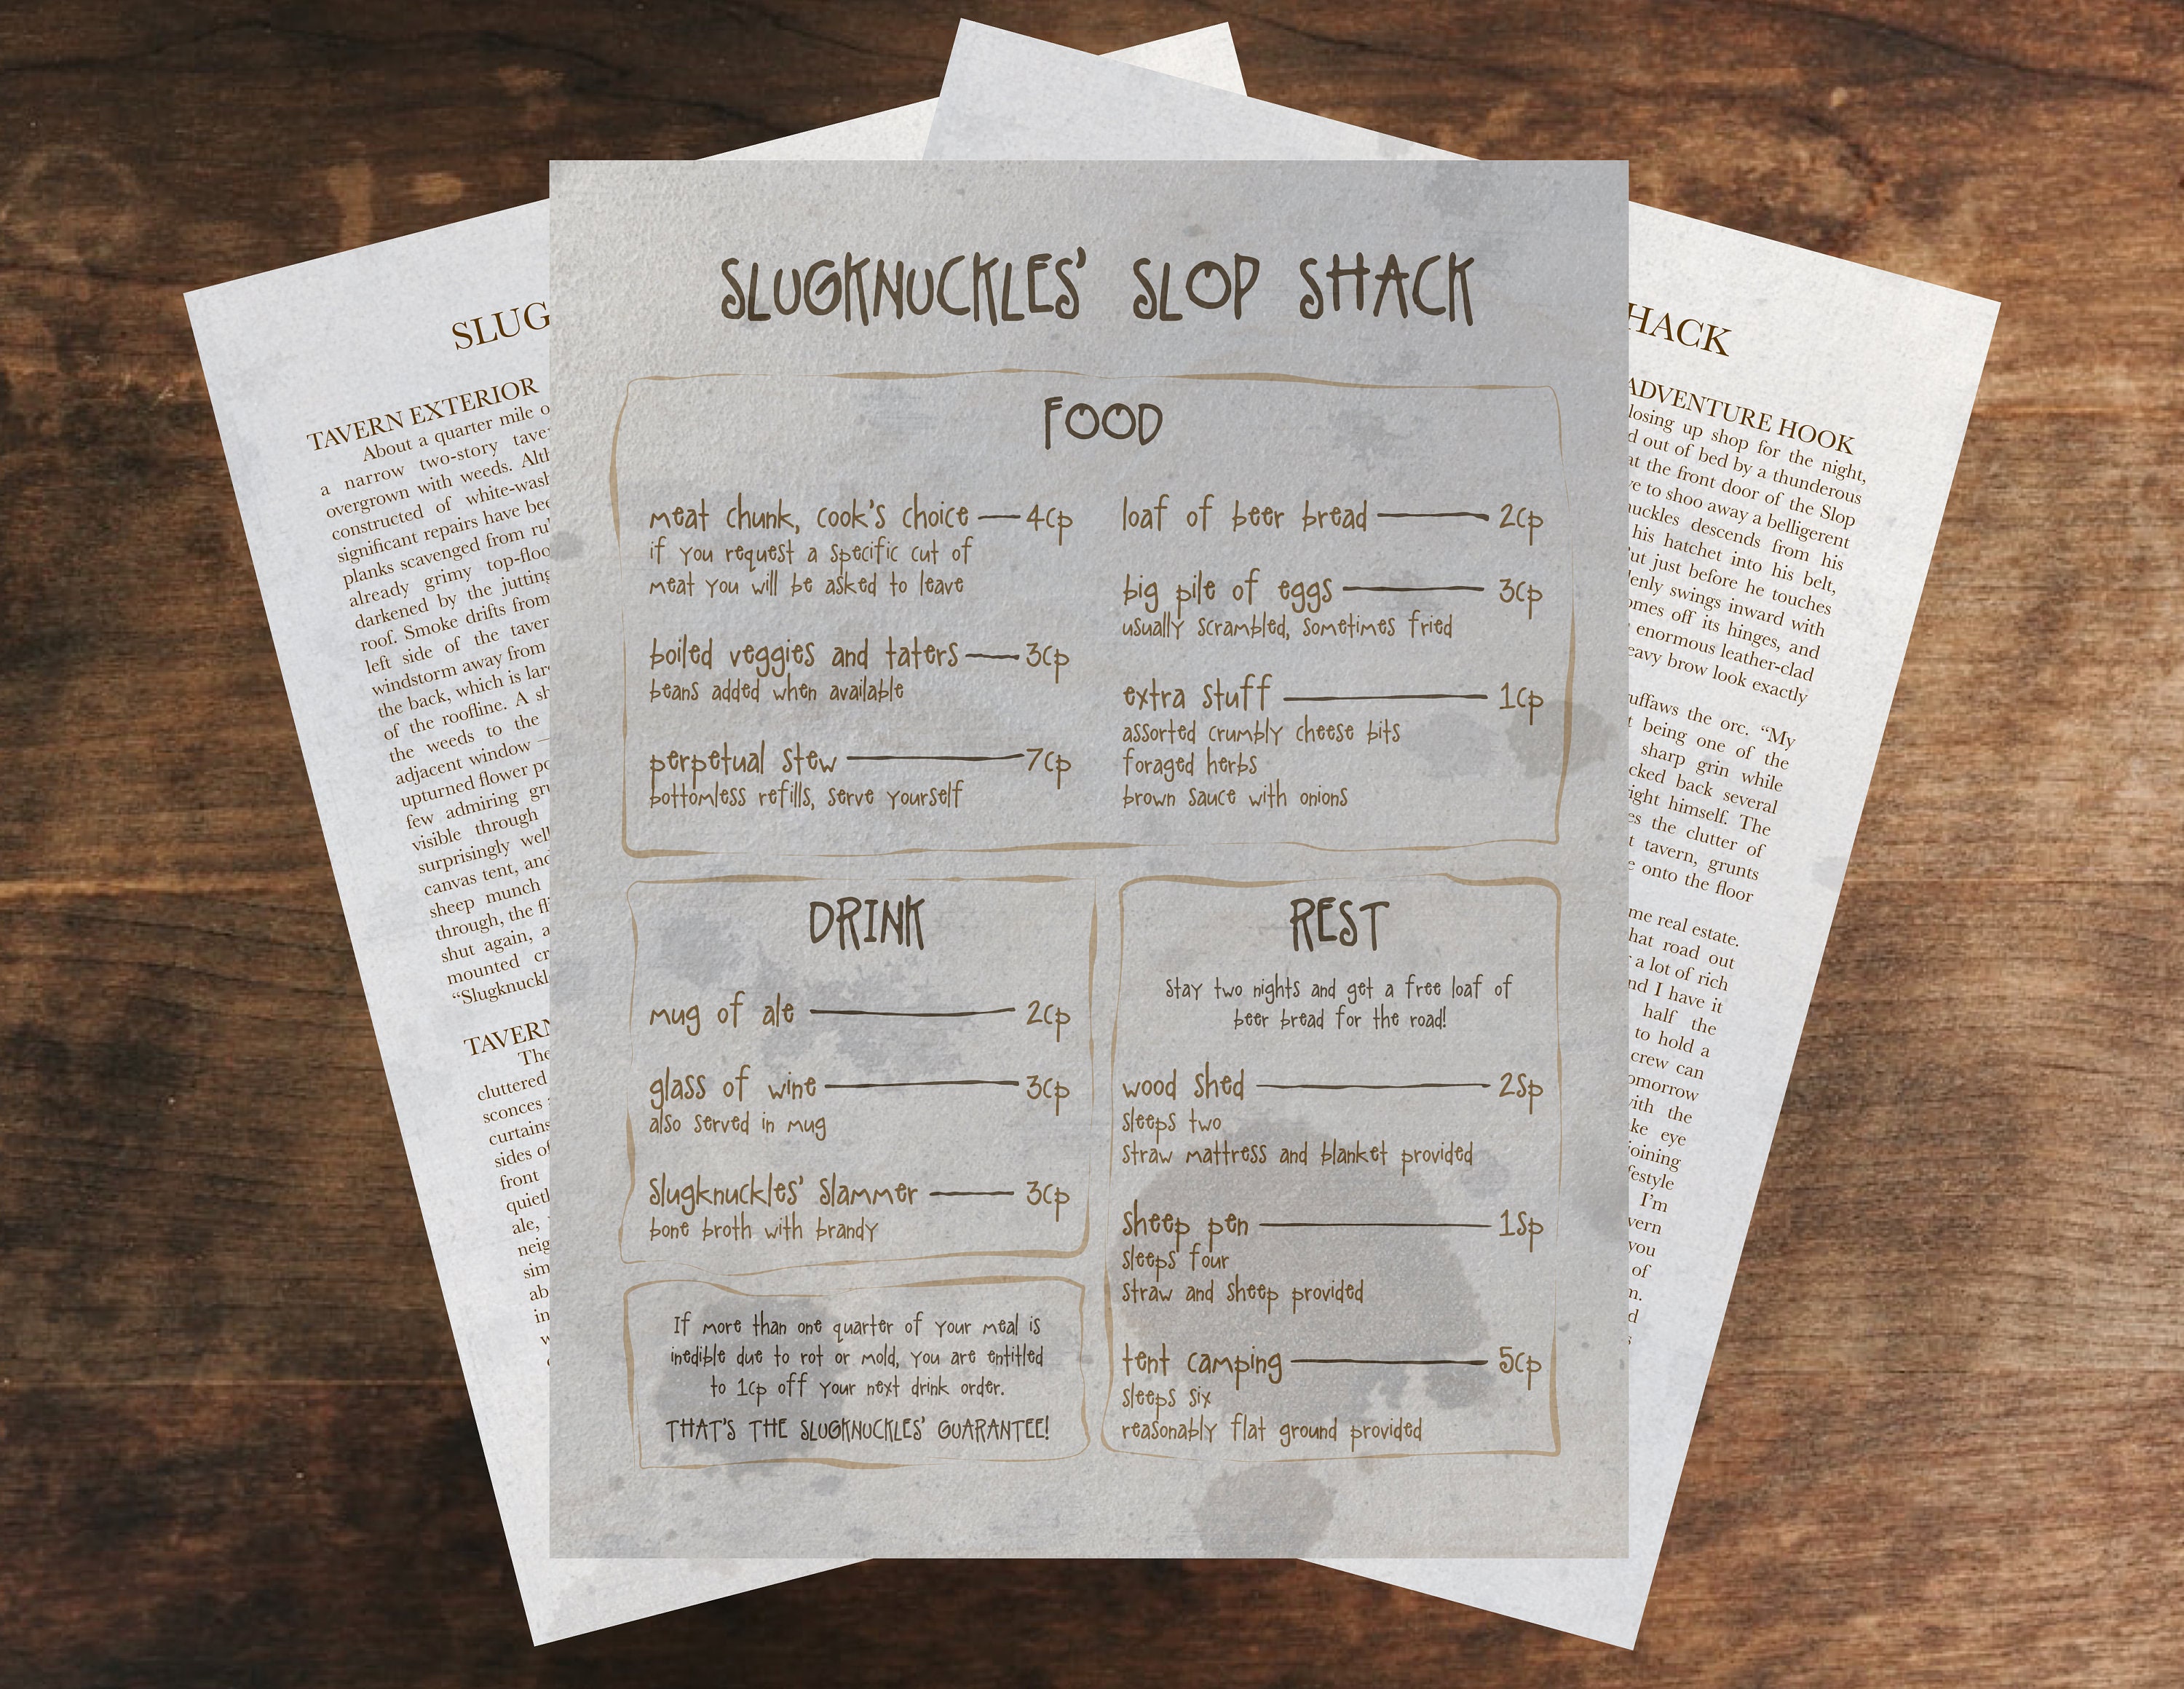 SLUGKNUCKLES' SLOP SHACK
FOOD
meat chunk, cook's choice 4cp
if you request a specific cut of
meat you will be asked to leave
boiled veggies and taters 3cp
beans added when available
perpetual stew 7cp
bottomless refills, serve yourself
loaf of beer bread 2cp
big pile of eggs 3cp
usually scrambled, sometimes fried
extra stuff 1cp
assorted crumbly cheese bits
foraged herbs
brown sauce with onions
DRINK
mug of ale 2cp
glass of wine 3cp
also served in mug
slugknuckles' slammer 3cp
bone broth with brandy
If more than one quarter of your meal is
inedible due to rot or mold, you are entitled
to 1cp off your next drink order.
THAT'S THE SLUGKNUCKLES' GUARANTEE!
REST
Stay two nights and get a free loaf of
beer bread for the road!
wood shed 2sp
sleeps two
straw mattress and blanket provided
sheep pen 1sp
sleeps four
straw and sheep provided
tent camping 5cp
sleeps six
reasonably flat ground provided
SLUG
TAVERN EXTERIOR
About a quarter mile
a narrow two-story
overgrown with weeds.
constructed of
significant repairs have
planks scavenged from
already grimy
darkened by the jutting
roof. Smoke drifts from
left side of the
windstorm away from
the back, which is
of the roofline. A
the weeds to the
adjacent window —
upturned flower
few admiring
visible through
surprisingly
canvas tent, and
sheep munch
through, the
shut again,
mounted
TAVERN
The
cluttered
sconces
curtains
sides
front
ale,
HACK
ADVENTURE HOOK
up shop for the night,
out of bed by a thunderous
at the front door of the Slop
to shoo away a belligerent
descends from his
his hatchet into his belt,
but just before he touches
swings inward with
off its hinges, and
enormous leather-clad
brow look exactly
the orc. “My
being one of the
sharp grin while
back several
himself. The
the clutter of
tavern, grunts
onto the floor
real estate.
that road out
a lot of rich
and I have it
half the
to hold a
crew can
with the
eye
I'm
you
of